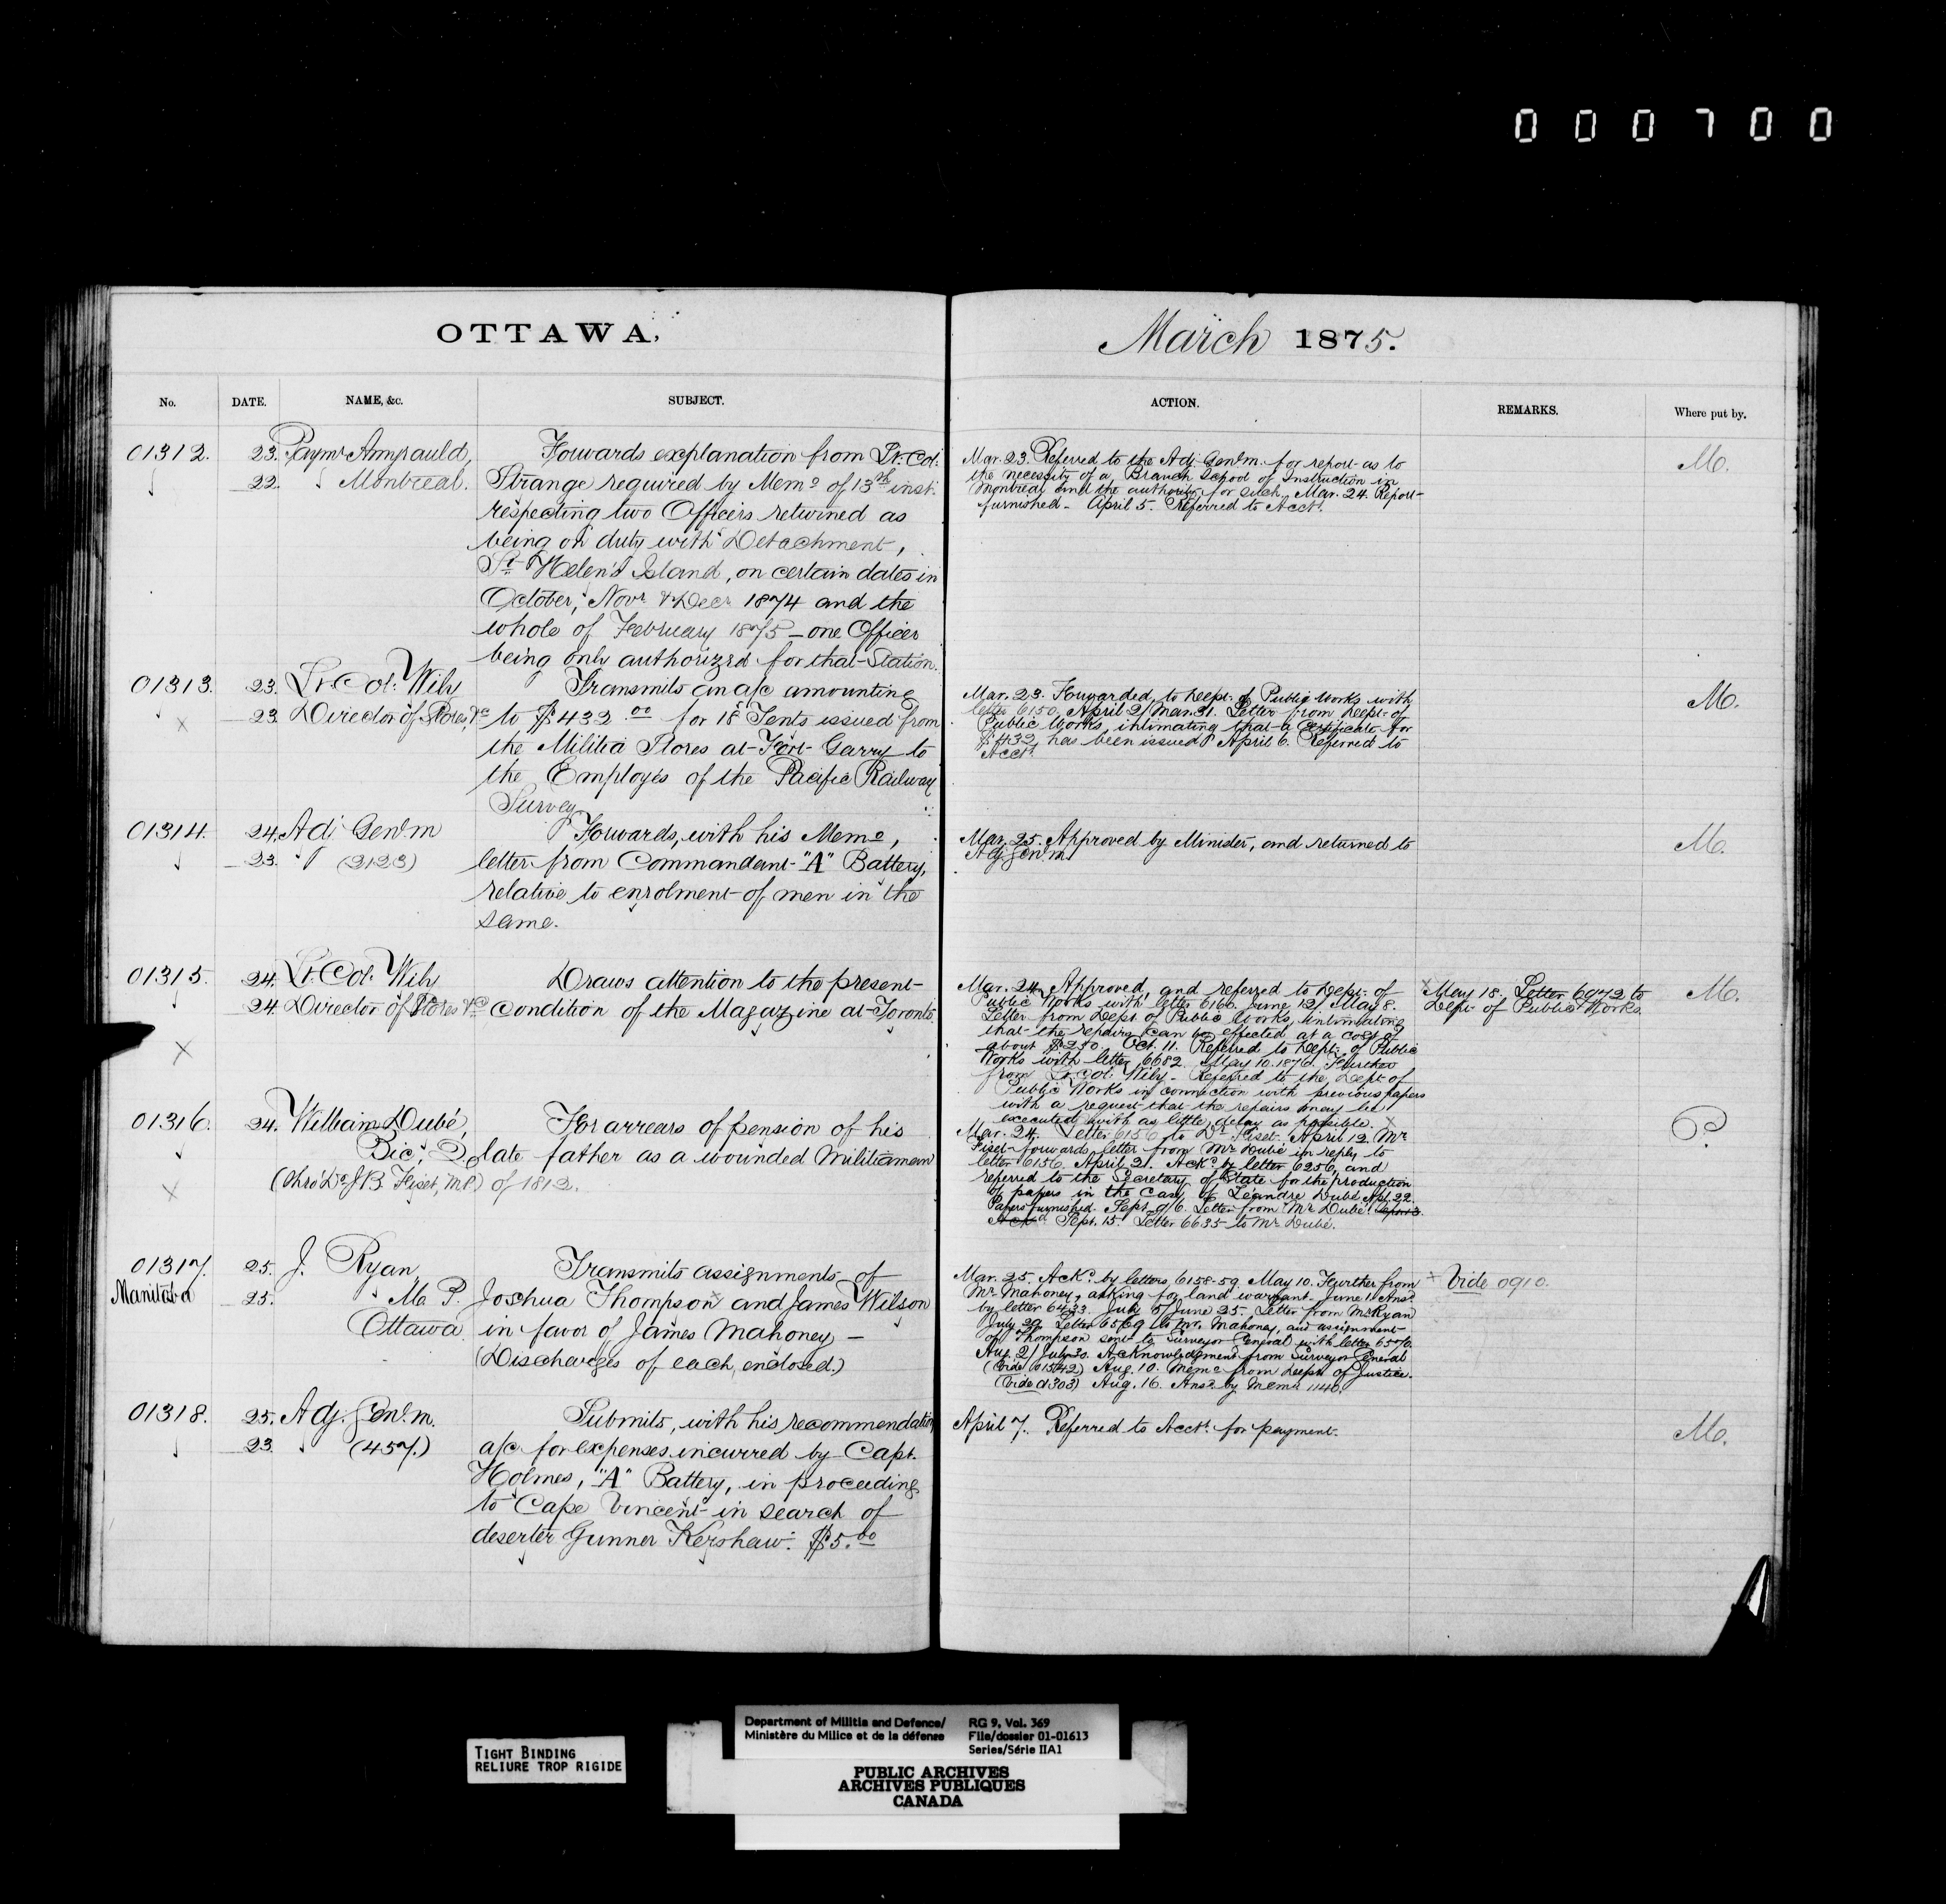 000700
OTTAWA,
March 1875.
No.
DATE.
NAME, &c.
SUBJECT.
ACTION.
REMARKS.
Where put by.
01312.
23.
22.
Paymr Amyrauld,
Montreal.
Forwards explanation from Lt. Col.
Strange required by Memo of 13th inst.
respecting two Officers returned as
being on duty with Detachment,
St Helen's Island, on certain dates in
October, Novr & Decr 1874 and the
whole of February 1875 — one Officer
being only authorized for that Station.
Mar. 23. Referred to the Adj. Genl. m. for report as to
the necessity of a Branch School of Instruction in
Montreal and the authority for such. Mar. 24. Report
furnished - April 5. Referred to Acct.
M.
01313.
23.
23
Lt. Col. Wily
Director of Stores, &c
Transmits an a/c amounting
to $432.00 for 18 Tents issued from
the Militia Stores at Fort Garry to
the Employés of the Pacific Railway
Survey.
Mar. 23. Forwarded to Dept. of Public Works with
letter 6150. April 2/Mar. 31. Letter from Dept. of
Public Works intimating that a Certificate for
$432 has been issued. April 6. Referred to
Acct.
M.
01314.
24.
23.
Adj. Genl. m
(2123)
Forwards, with his Memo,
letter from Commandant "A" Battery,
relative to enrolment of men in the
same.
Mar. 25. Approved by Minister, and returned to
Adj Genl. m
M.
01315.
24.
24.
Lt. Col. Wily
Director of Stores &c
Draws attention to the present
condition of the Magazine at Toronto.
Mar. 24. Approved, and referred to Dept. of
Public Works with letter 6160. June 12/May 8.
Letter from Dept. of Public Works, intimating
that the repairs can be effected at a cost of
about $250. Oct. 11. Referred to Dept. of Public
Works with letter 6682. May 10. 1876. Further
from Lt. Col. Wily - Referred to the Dept. of
Public Works in connection with previous papers
with a request that the repairs may be
executed with as little delay as possible. x
x May 18. Letter 6972 to
Dept. of Public Works.
M.
01316.
24.
William Dubé,
Bic, Q.
(thro' Dr. J. B. Fiset, M.P.)
For arrears of pension of his
late father as a wounded Militiaman
of 1812.
Mar. 24. Letter 6156 to Dr. Fiset. April 12. Mr.
Fiset forwards letter from Mr. Dubé in reply to
letter 6156. April 21. Ackd. by letter 6256, and
referred to the Secretary of State for the production
of papers in the case of Léandre Dubé. Apl. 22.
Papers furnished. Sept. 9/6. Letter from Mr. Dubé.
Sept. 15. Letter 6635 to Mr. Dubé.
P.
01317.
Manitoba
25.
25.
J. Ryan
M. P.
Ottawa
Transmits assignments of
Joshua Thompson and James Wilson
in favor of James Mahoney —
(Discharges of each, enclosed.)
Mar. 25. Ackd. by letters 6158-59. May 10. Further from
Mr. Mahoney, asking for land warrant. June 11. Ansd.
by letter 6433. July 5/June 25. Letter from Mr Ryan
July 29. Letter 6569 to Mr. Mahoney, and assignment
of Thompson sent to Surveyor General with letter 6570.
Aug. 2/July 30. Acknowledgment from Surveyor General
(Vide 01542) Aug. 10. Memo. from Dept. of Justice.
(Vide 01303) Aug. 16. Ansd. by Memo. 1140.
x Vide 0910.
01318.
25.
23.
Adj. Genl. m.
(457.)
Submits, with his recommendation
a/c for expenses incurred by Capt.
Holmes, "A" Battery, in proceeding
to Cape Vincent in search of
deserter Gunner Kershaw. $5.00
April 7. Referred to Acct. for payment.
M.
TIGHT BINDING
RELIURE TROP RIGIDE
Department of Militia and Defence/
Ministère du Milice et de la défense
RG 9, Vol. 369
File/dossier 01-01613
Series/Série IIA1
PUBLIC ARCHIVES
ARCHIVES PUBLIQUES
CANADA